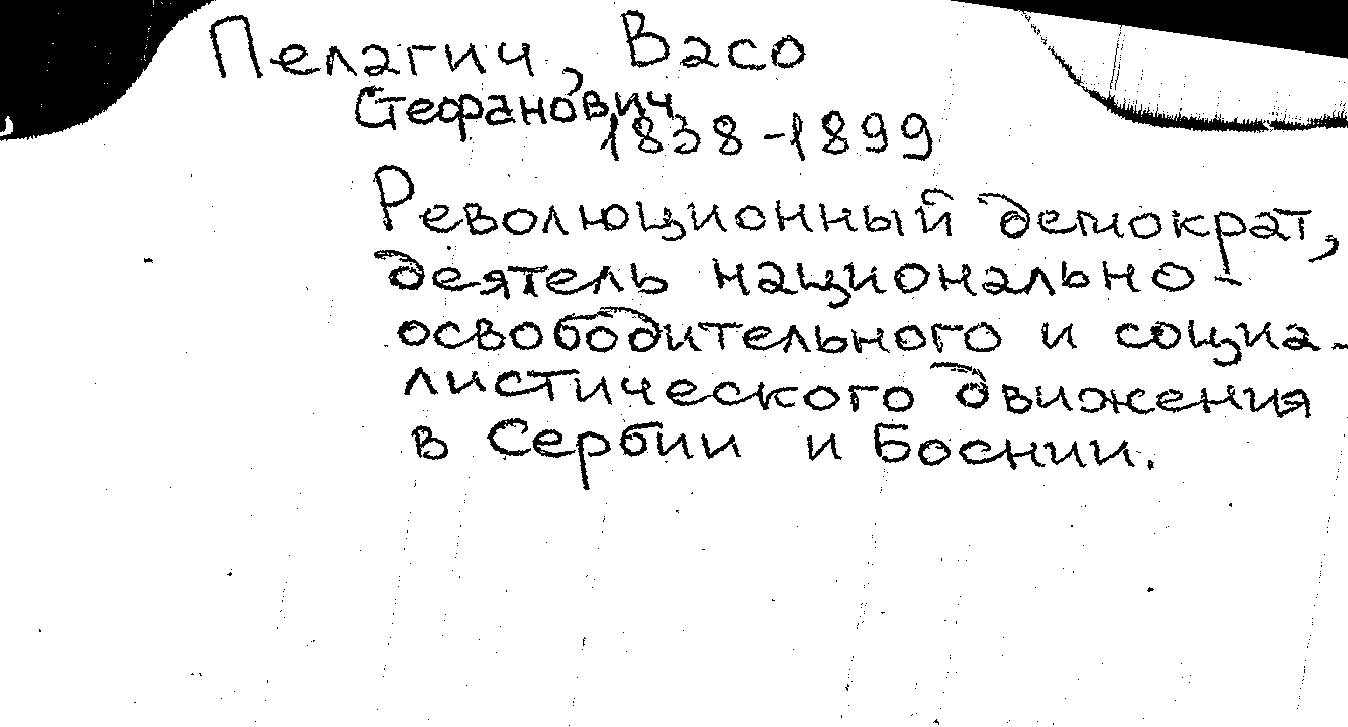 Пелагич, Васо
Стефанович
1838-1899
Революционный демократ,
деятель национально-
освободительного и социа-
листического движения
в Сербии и Боснии.